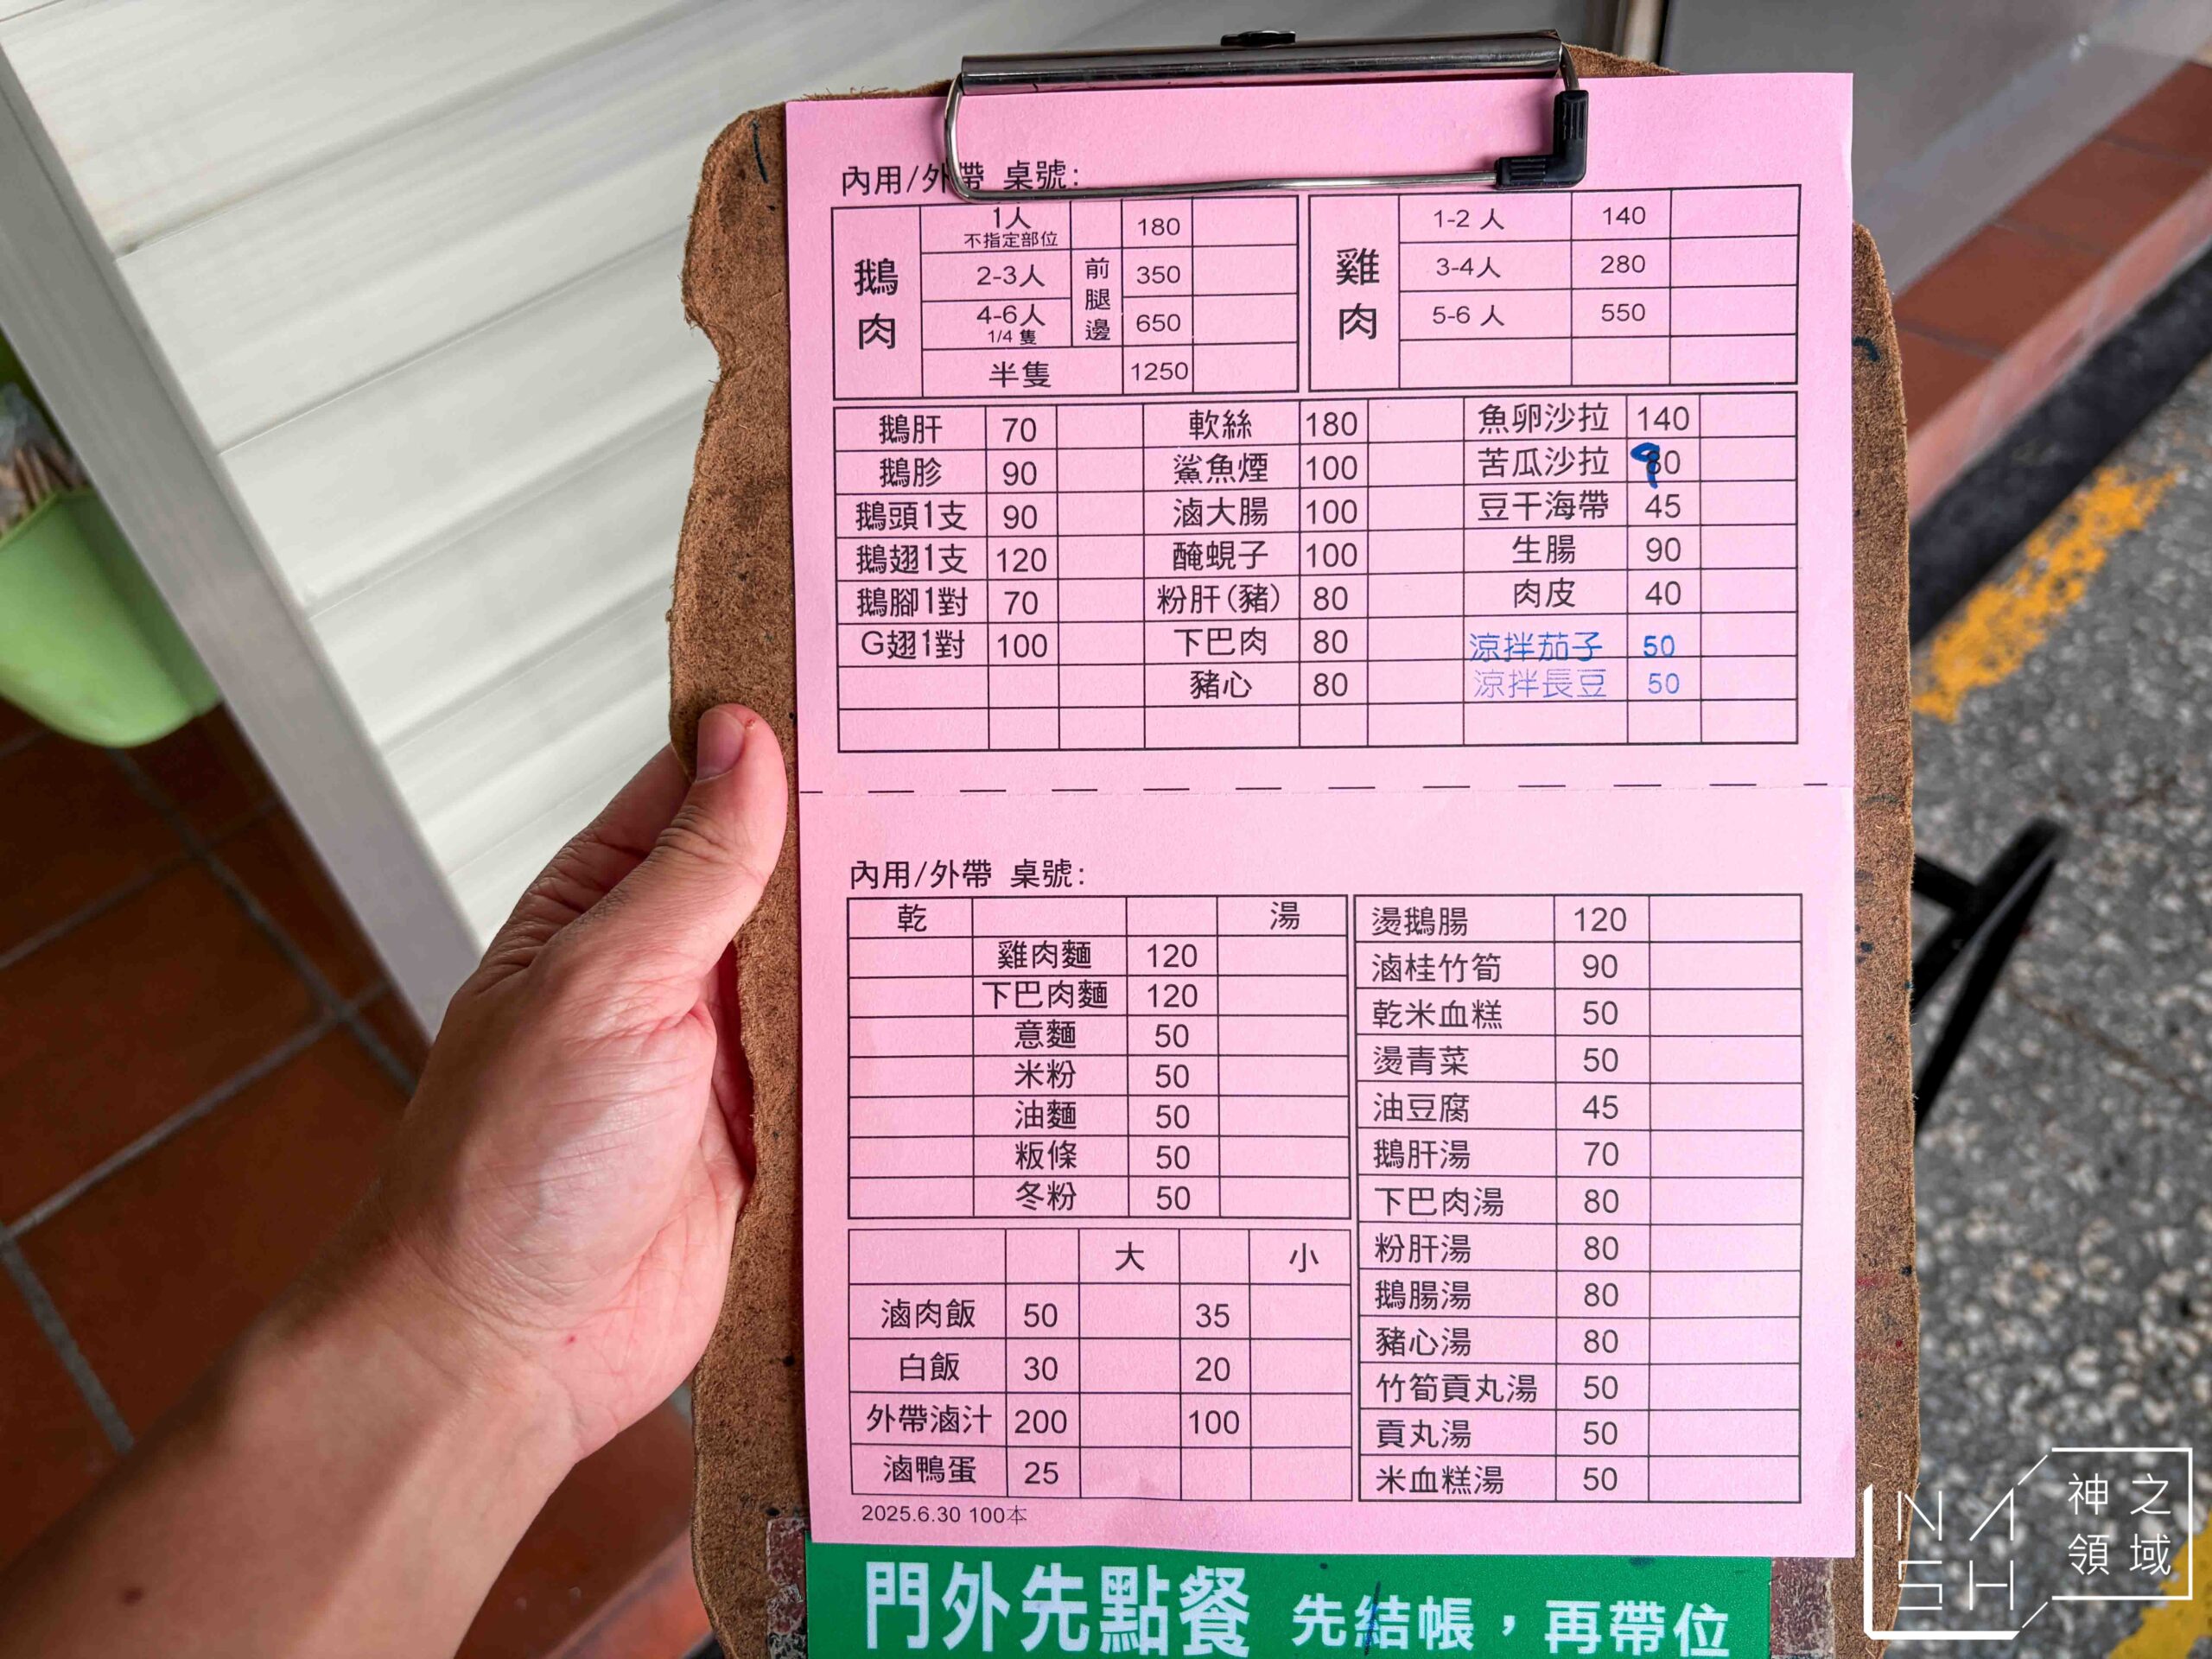 內用/外帶 桌號:
鵝肉 1人 不指定部位 180
2-3人 前腿邊 350
4-6人 1/4 隻 650
半隻 1250
雞肉 1-2 人 140
3-4人 280
5-6 人 550
鵝肝 70 軟絲 180 魚卵沙拉 140
鵝胗 90 鯊魚煙 100 苦瓜沙拉 90
鵝頭1支 90 滷大腸 100 豆干海帶 45
鵝翅1支 120 醃蜆子 100 生腸 90
鵝腳1對 70 粉肝(豬) 80 肉皮 40
G翅1對 100 下巴肉 80 涼拌茄子 50
豬心 80 涼拌長豆 50
內用/外帶 桌號:
乾 湯
雞肉麵 120
下巴肉麵 120
意麵 50
米粉 50
油麵 50
粄條 50
冬粉 50
大 小
滷肉飯 50 35
白飯 30 20
外帶滷汁 200 100
滷鴨蛋 25
燙鵝腸 120
滷桂竹筍 90
乾米血糕 50
燙青菜 50
油豆腐 45
鵝肝湯 70
下巴肉湯 80
粉肝湯 80
鵝腸湯 80
豬心湯 80
竹筍貢丸湯 50
貢丸湯 50
米血糕湯 50
2025.6.30 100本
門外先點餐 先結帳，再帶位
NASH 神之領域